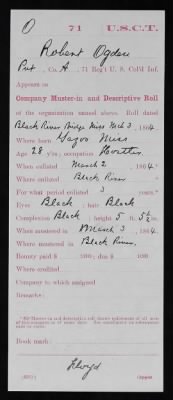 O 71 U.S.C.T.
Robert Ogden
Pvt, Co. A, 71 Reg't U. S. Col'd Inf.
Appears on
Company Muster-in and Descriptive Roll
of the organization named above. Roll dated
Black River Bridge Miss Mch 3, 1864
Where born Yazoo Miss
Age 28 y'rs; occupation
When enlisted March 2, 1864
Where enlisted Black River
For what period enlisted 3 years.
Eyes Black; hair Black
Complexion Black; height 5 ft. 5½ in.
When mustered in March 3, 1864
Where mustered in Black River
Bounty paid $ 100; due $ 100
Where credited
Company to which assigned
Remarks:
Book mark:
Lloyd
Copyist.